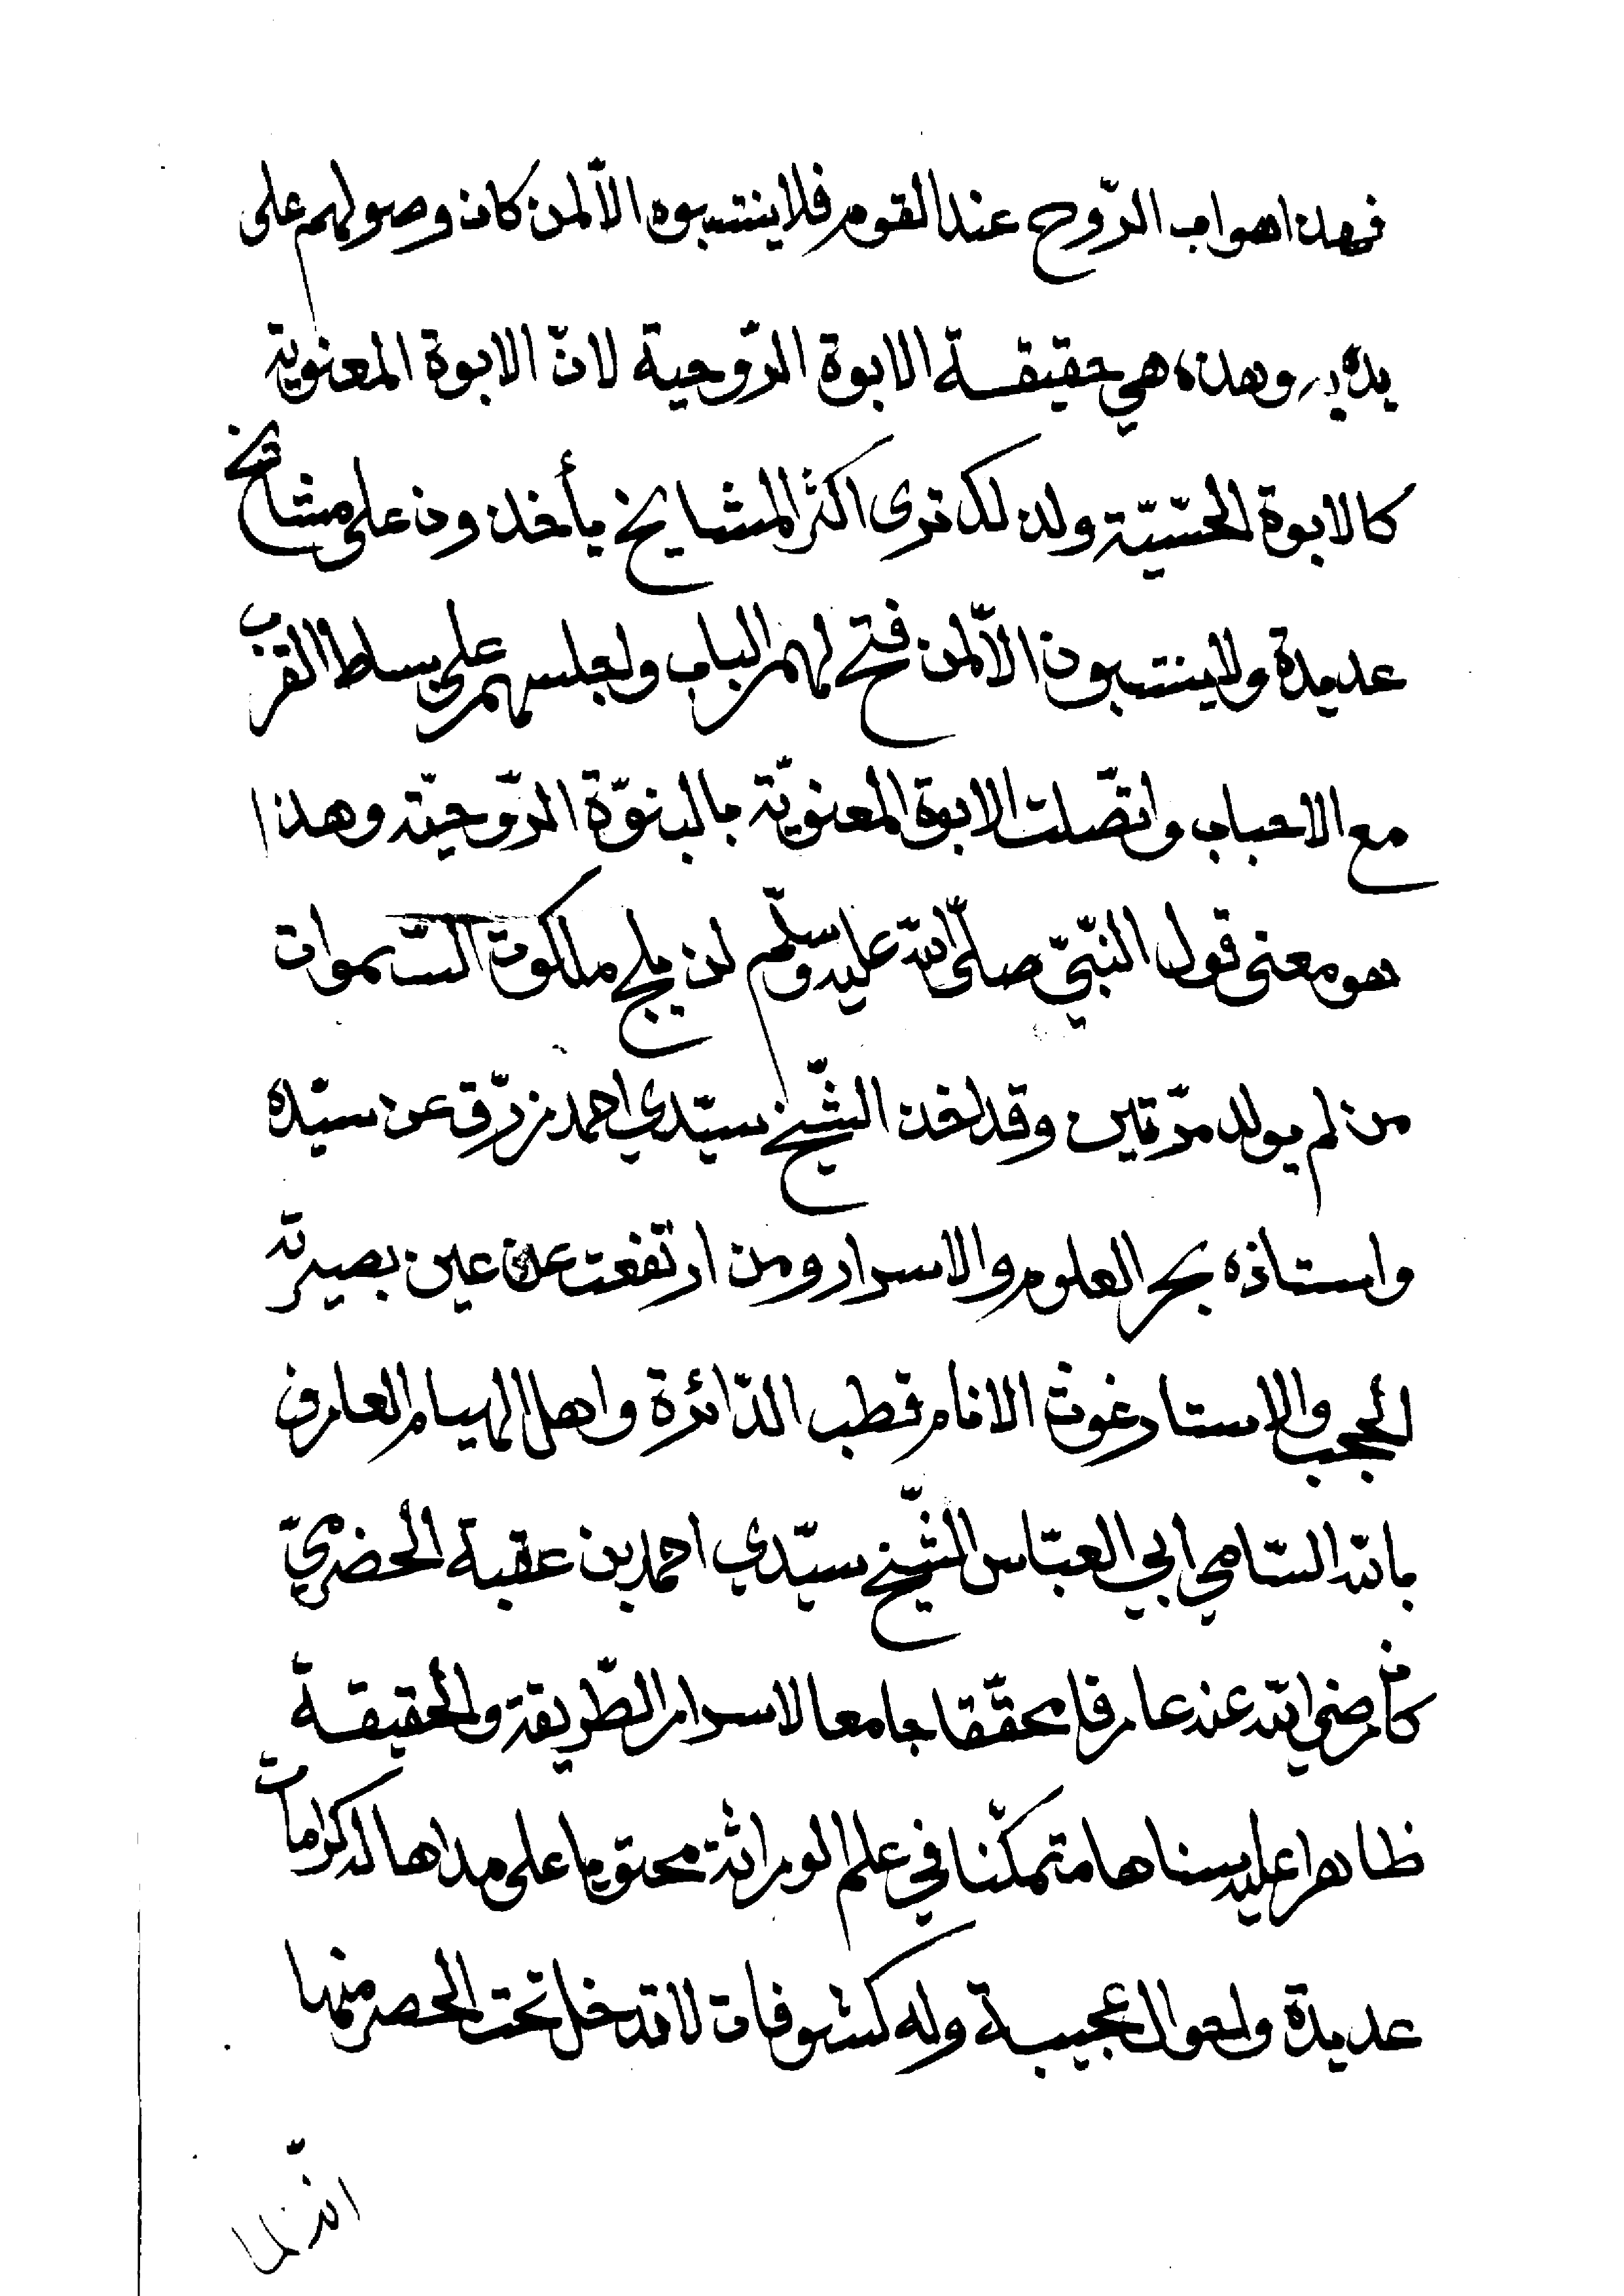 فهذا هو اب الرّوح عند القوم فلا ينتسبوه الّا لمن كان وصولهم على
يديه وهذه هي حقيقة الابوة الرّوحية لانّ الابوة المعنوية
كالابوة الحسّيّة ولذلك ترى اكثر المشايخ يأخذون على مشايخ
عديدة ولا ينتسبون الّا لمن فتح لهم الباب واجلسهم على بساط القرب
مع الاحباب واتّصلت الابوة المعنويّة بالبنوّة الرّوحيّة وهذا
هو معنى قول النّبيّ صلّى الله عليه وسلّم لن يلج ملكوت السّموات
من لم يولد مرّتين وقد اخذ الشّيخ سيّدي احمد زرّق عن سيّده
واستاذه بحر العلوم والاسرار ومن ارتفعت عن عين بصيرته
الحجب والاستار غوث الانام قطب الدّائرة واهل الهيام العارف
بالله السّامي ابي العبّاس الشّيخ سيّدي احمد بن عقبة الحضرميّ
كان رضي الله عنه عارفا محقّقا جامعا لاسرار الطّريقة والحقيقة
ظاهرا عليه سناها متمكّنا في علم الوراثة محتويا على مداها له كرامات
عديدة واحوال عجيبة وله كشوفات لا تدخل تحت الحصر منها
انّه لما